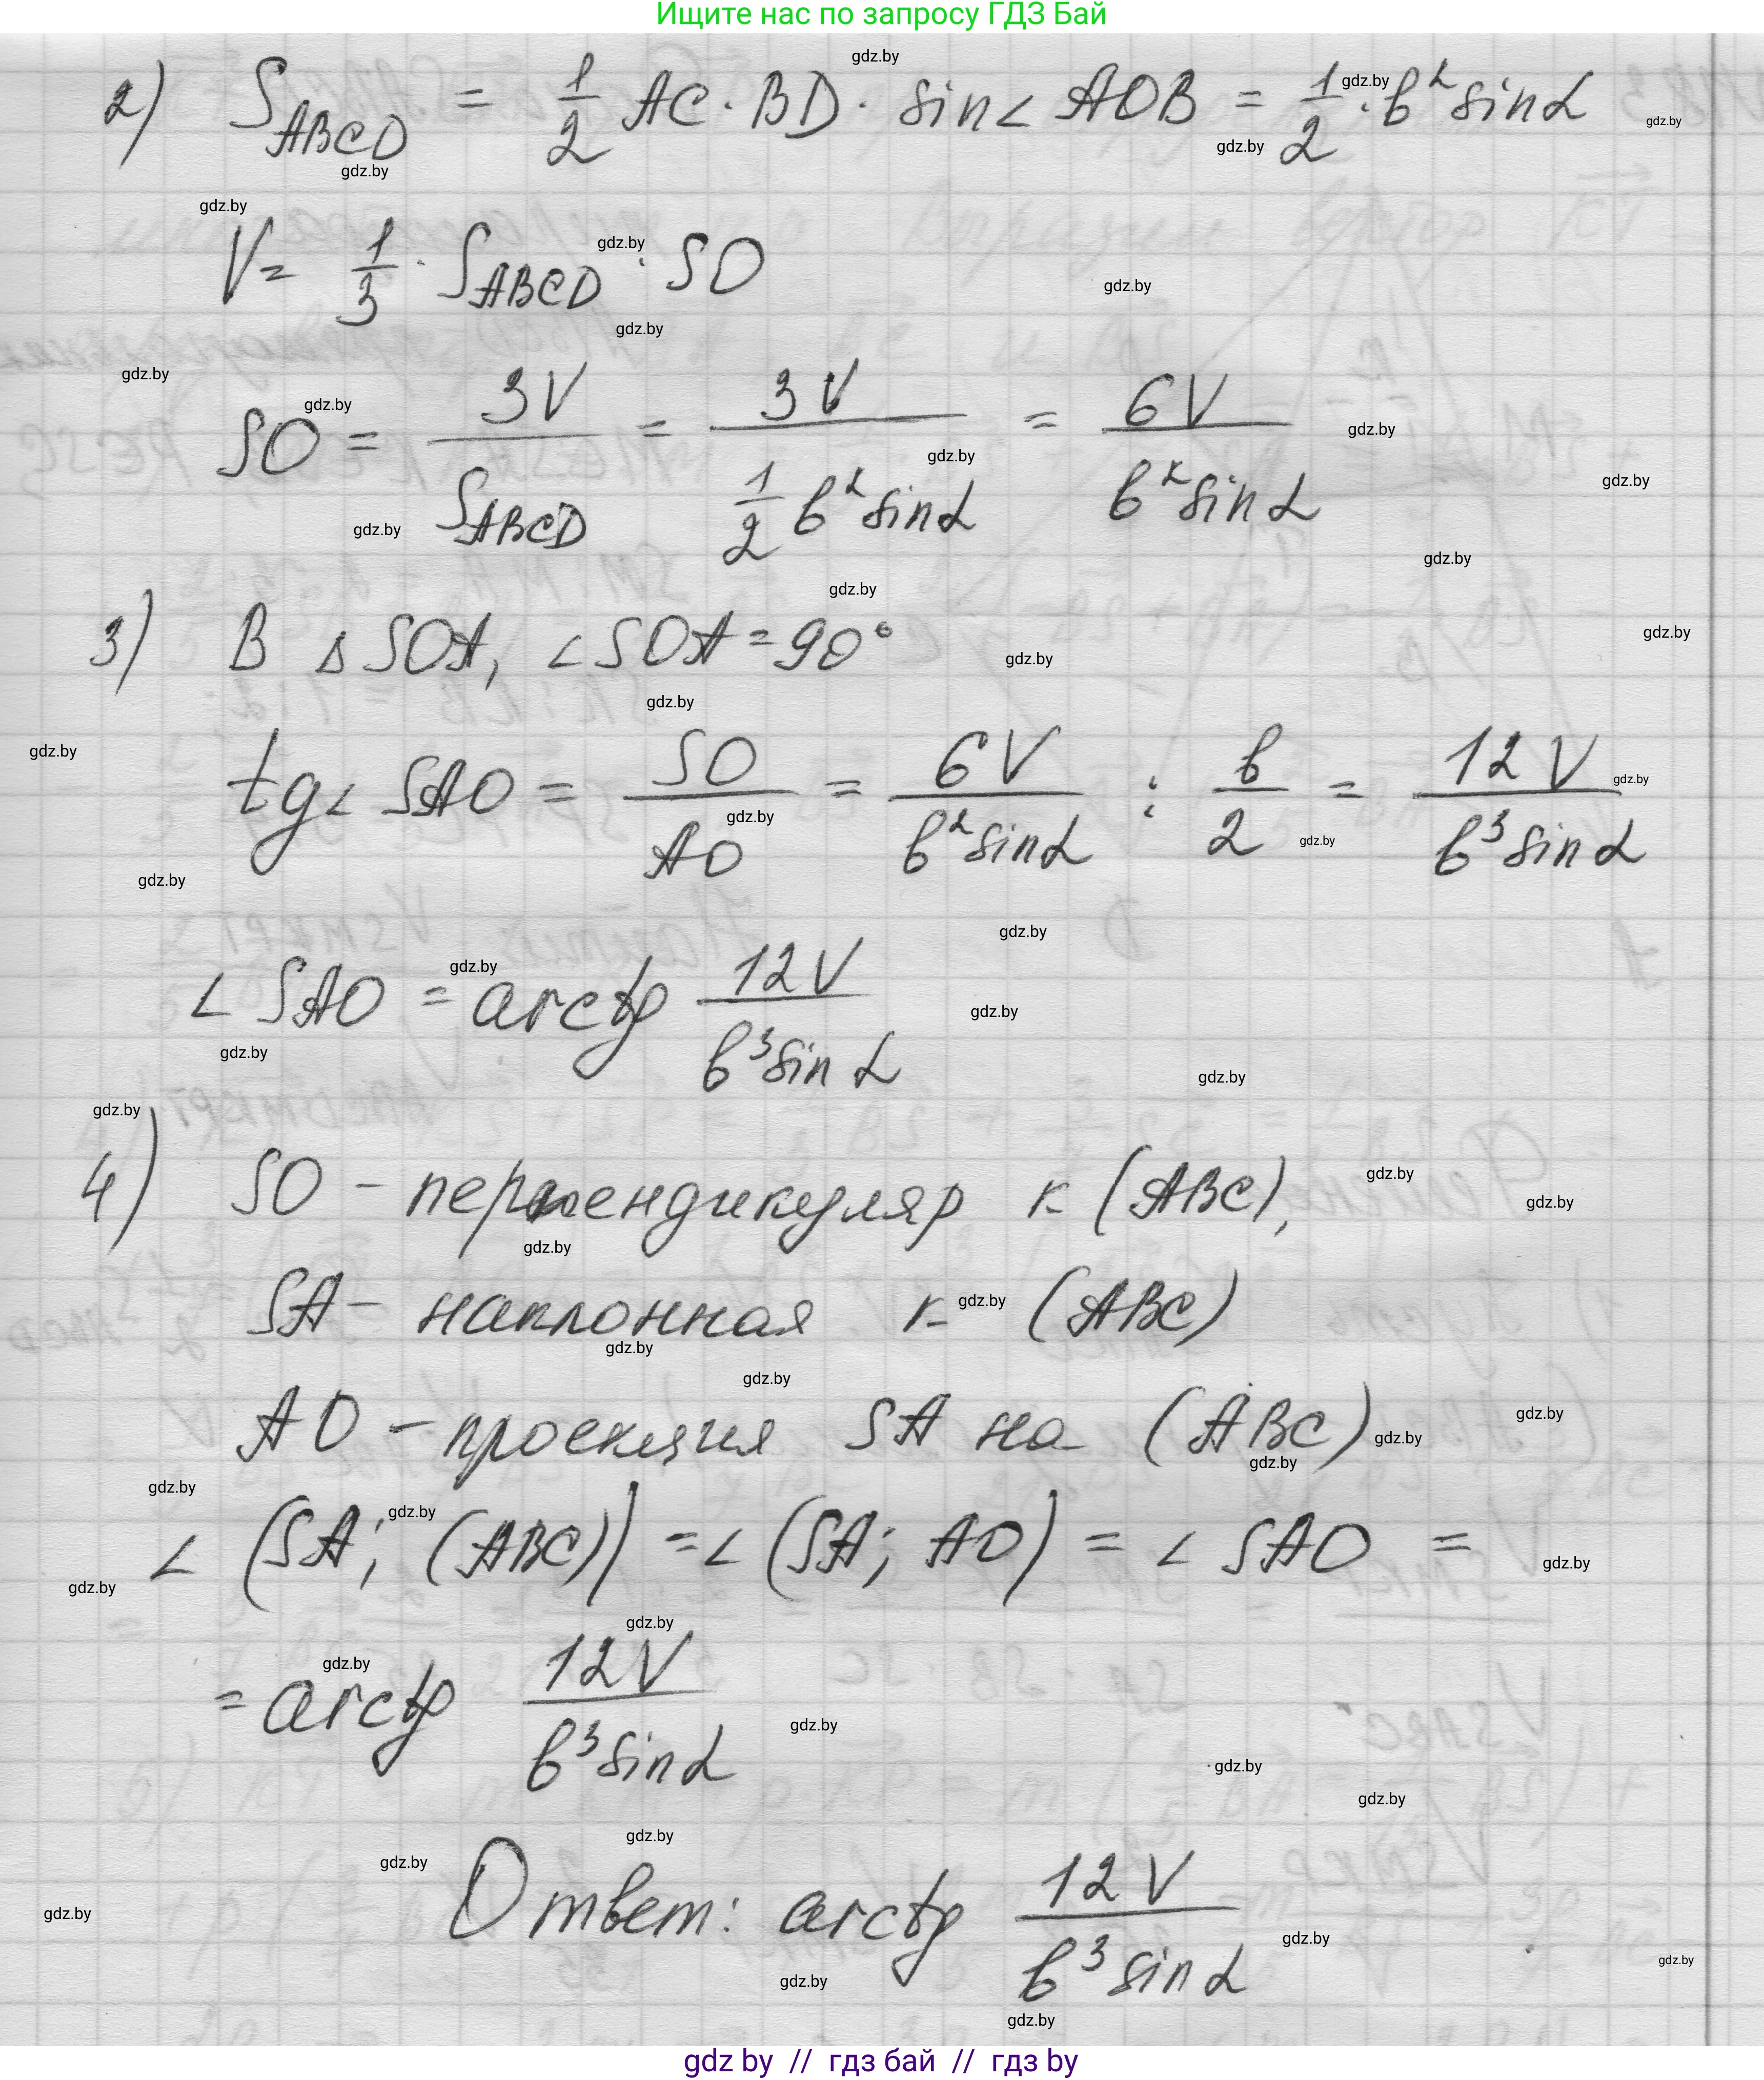 Ищите нас по запросу ГДЗ Бай
2) S_ABCD = 1/2 AC · BD · sin∠AOB = 1/2 · b² sin α
V = 1/3 · S_ABCD · SO
SO = 3V / S_ABCD = 3V / (1/2 b² sin α) = 6V / (b² sin α)
3) В △SOA, ∠SOA = 90°
tg∠SAO = SO / AO = 6V / (b² sin α) : b/2 = 12V / (b³ sin α)
∠SAO = arctg 12V / (b³ sin α)
4) SO – перпендикуляр к (ABC),
SA – наклонная к (ABC)
AO – проекция SA на (ABC)
∠(SA; (ABC)) = ∠(SA; AO) = ∠SAO =
= arctg 12V / (b³ sin α)
Ответ: arctg 12V / (b³ sin α)
gdz by // гдз бай // гдз by